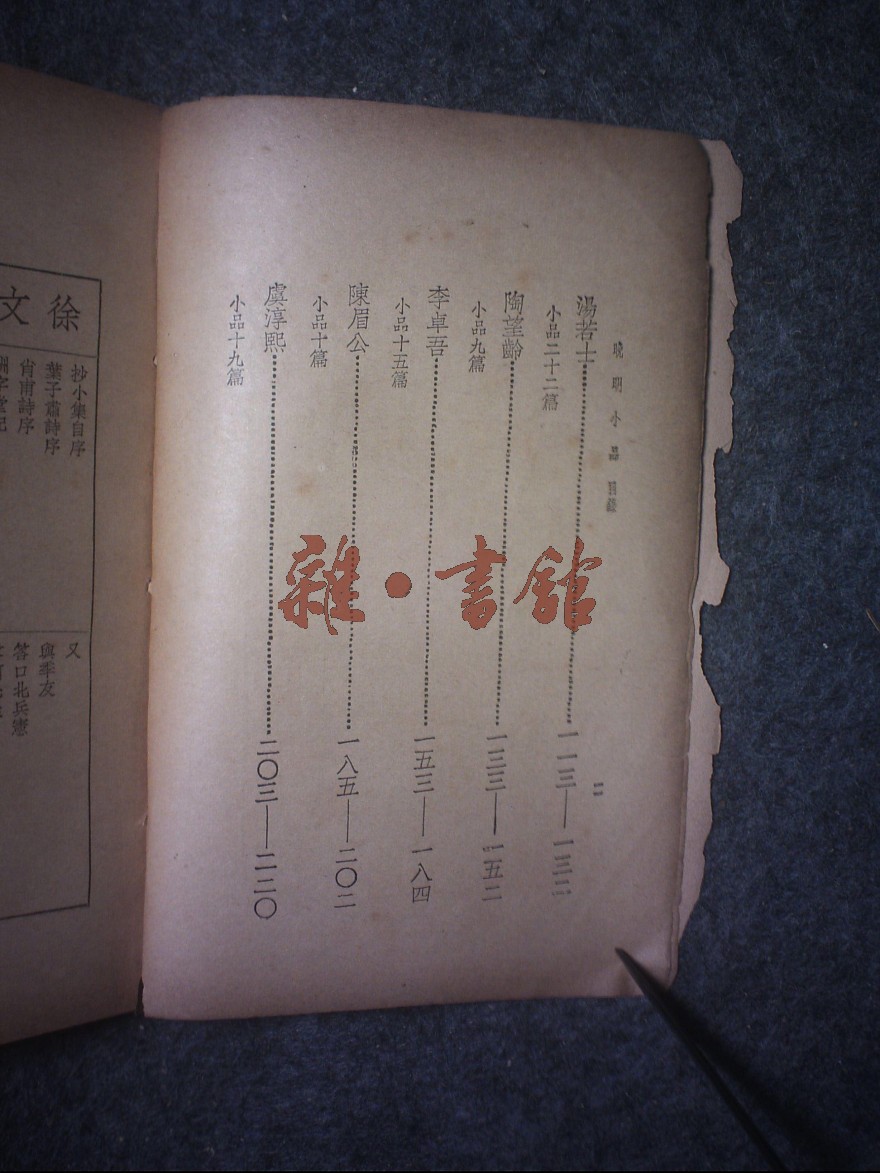 晚明小品目錄
二
湯若士……一一三——一三二
小品二十二篇
陶望齡……一三三——一五二
小品九篇
李卓吾……一五三——一八四
小品十五篇
陳眉公……一八五——二〇二
小品十篇
虞淳熙……二〇三——二二〇
小品十九篇
雜·書館
徐文
抄小集自序
葉子肅詩序
肖甫詩序
又
與季友
答口北兵憲